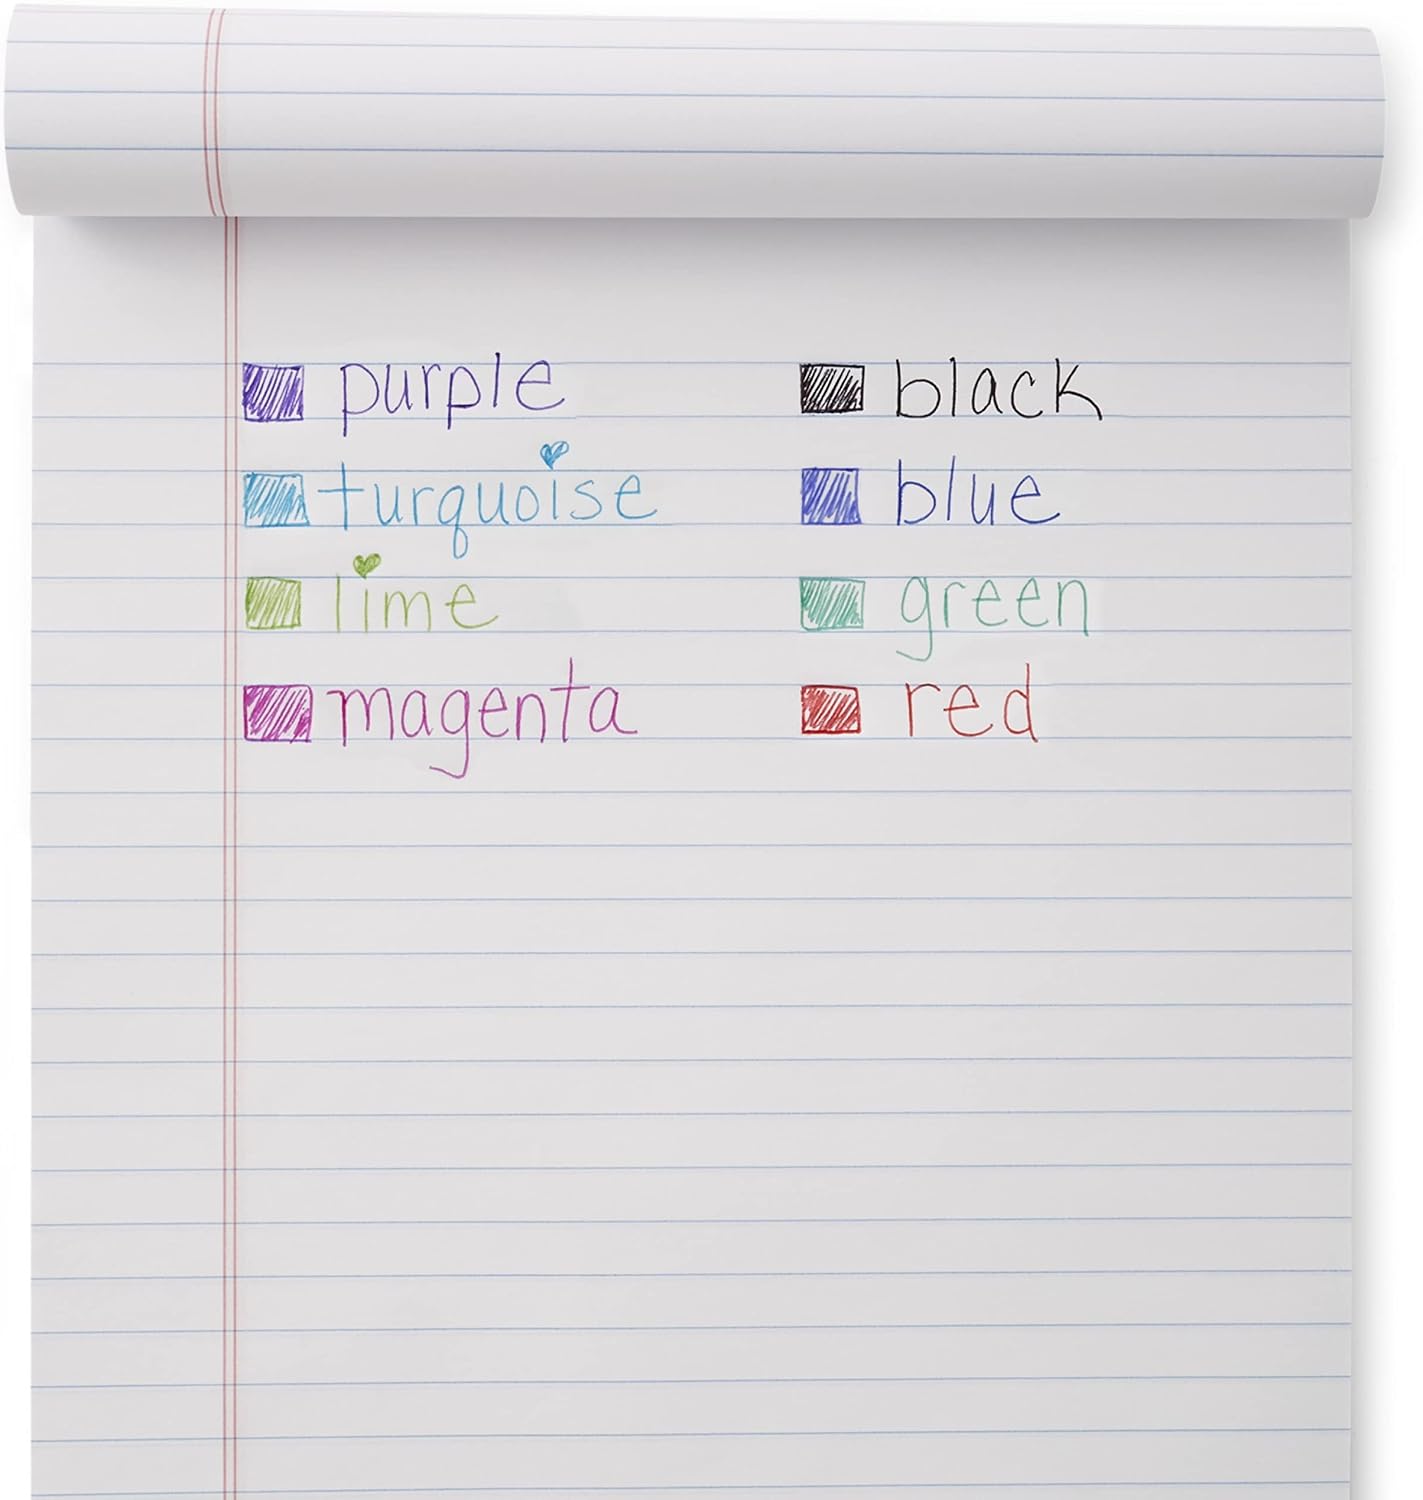 purple black
turquoise blue
lime green
magenta red